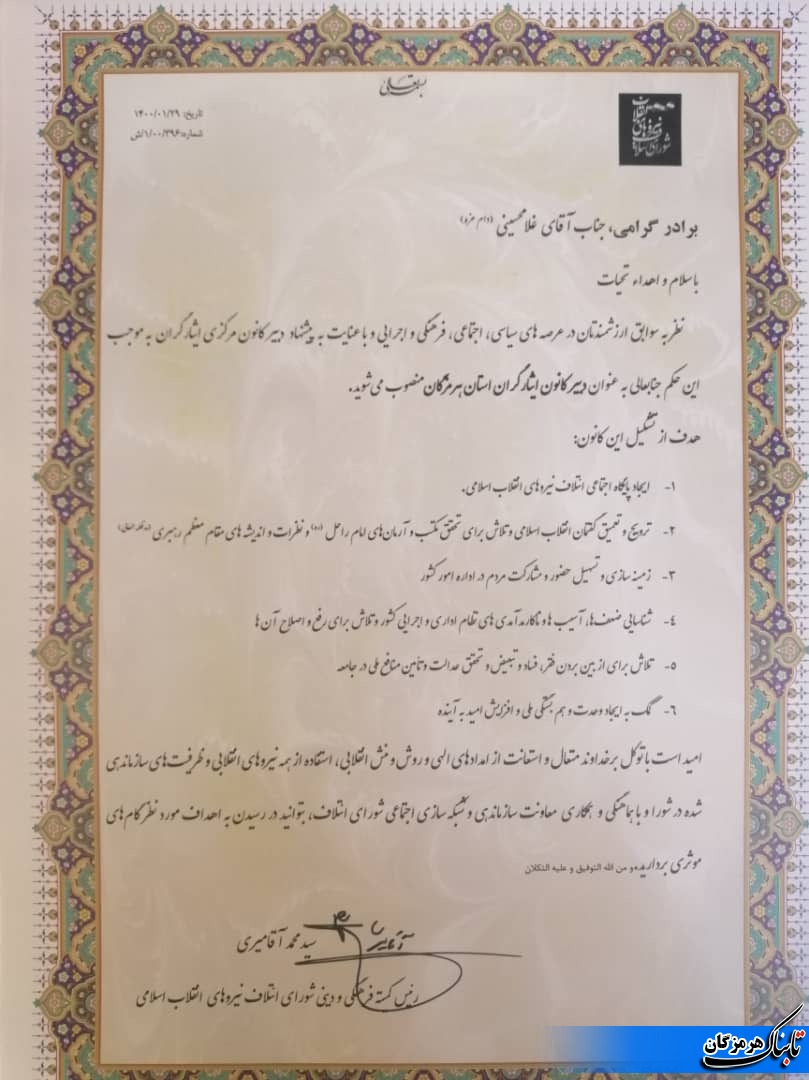 بسمه تعالی
تاریخ: ۱۴۰۰/۰۱/۲۹
شماره: ۱/۰۰/۳۹۶/ش
شورای ائتلاف نیروهای انقلاب اسلامی
برادر گرامی، جناب آقای غلامحسینی (دام عزه)
با سلام و اهداء تحیات
نظر به سوابق ارزشمندتان در عرصه های سیاسی، اجتماعی، فرهنگی و اجرایی و با عنایت به پیشنهاد دبیر کانون مرکزی ایثارگران به موجب
این حکم جنابعالی به عنوان دبیر کانون ایثارگران استان هرمزگان منصوب می‌شوید.
هدف از تشکیل این کانون:
۱- ایجاد پایگاه اجتماعی ائتلاف نیروهای انقلاب اسلامی.
۲- ترویج و تعمیق گفتمان انقلاب اسلامی و تلاش برای تحقق مکتب و آرمان‌های امام راحل (ره) و نظرات و اندیشه های مقام معظم رهبری (مدظله العالی)
۳- زمینه سازی و تسهیل حضور و مشارکت مردم در اداره امور کشور
۴- شناسایی ضعف‌ها، آسیب ها و ناکارمدآمدی های نظام اداری و اجرایی کشور و تلاش برای رفع و اصلاح آن ها
۵- تلاش برای از بین بردن فقر، فساد و تبعیض و تحقق عدالت و تأمین منافع ملی در جامعه
۶- کمک به ایجاد وحدت و هم بستگی ملی و افزایش امید به آینده
امید است با توکل بر خداوند متعال و استعانت از امدادهای الهی و روش و منش انقلابی، استفاده از همه نیروهای انقلابی و ظرفیت‌های سازماندهی
شده در شورا و با هماهنگی و همکاری معاونت سازماندهی و شبکه سازی اجتماعی شورای ائتلاف، بتوانید در رسیدن به اهداف مورد نظر گام های
موثری بردارید و من الله التوفیق و علیه التکلان
سید محمد آقامیری
رئیس کمیته فرهنگی و دینی شورای ائتلاف نیروهای انقلاب اسلامی
تابناک هرمزگان